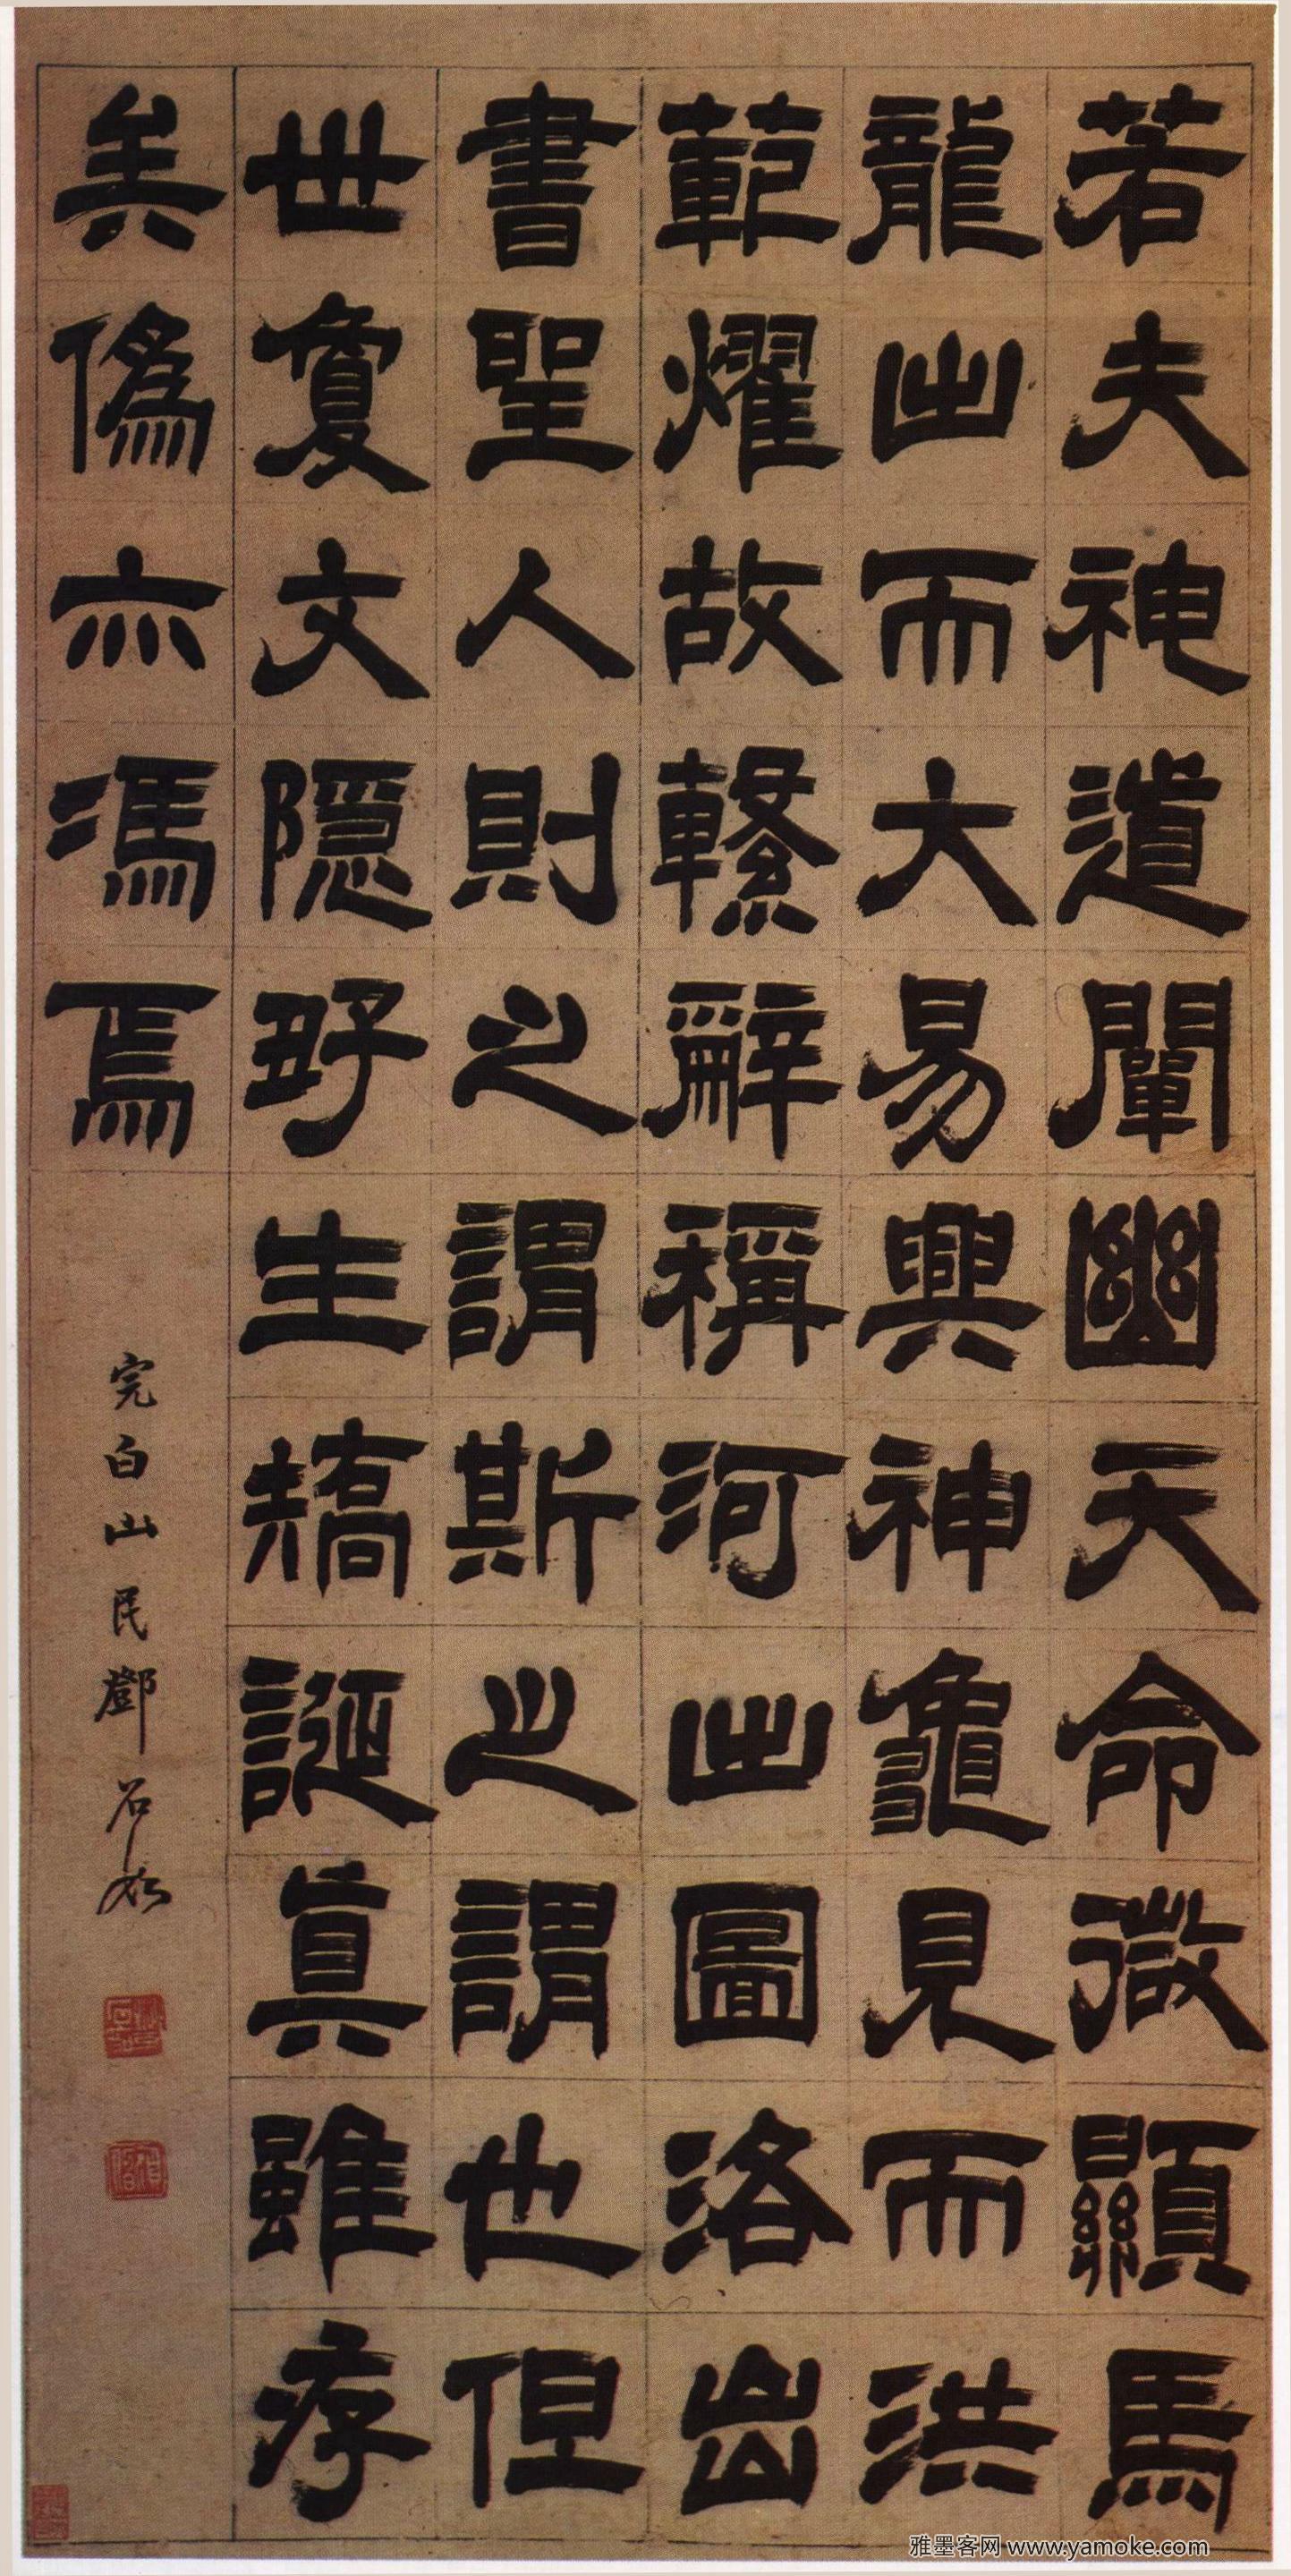 若夫神道闡幽天命微顯馬
龍出而大易興神龜見而洪
範燿故繫辭稱河出圖洛出
書聖人則之謂斯之謂也但
世夐文隱好生矯誕真雖存
矣偽亦馮焉
完白山民鄧石如
雅墨客网 www.yamoke.com